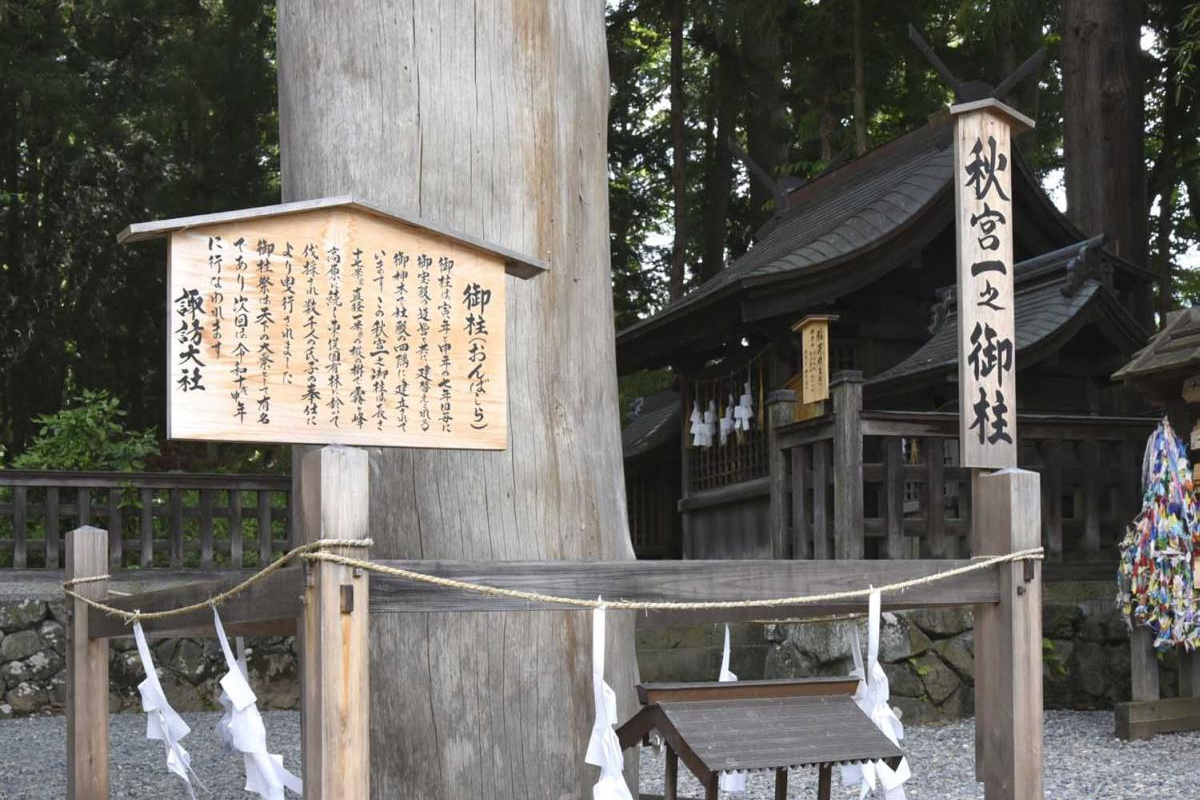 御柱(おんばしら)
御柱は寅年・申年の七年目毎に
御宝殿の造営と共に建替えられる
御神木で社殿の四隅に建立されて
います この秋宮一之御柱は長さ
十七米、直径一米の樅樹で霧ヶ峰
高原に続く東俣国有林に於いて
伐採され数千人の氏子の奉仕に
より曳行されました
御柱祭は天下の大祭としても有名
であり次回は令和十年申年
に行なわれます
諏訪大社
秋宮一之御柱